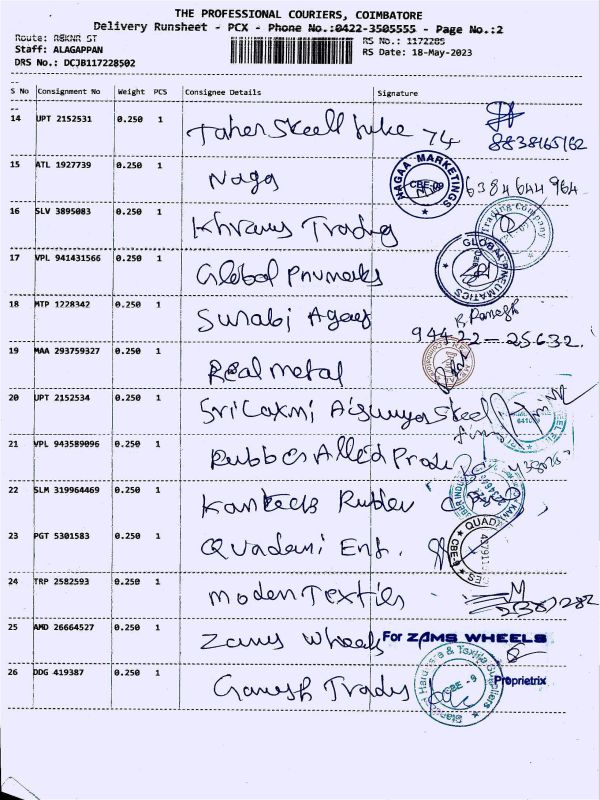 THE PROFESSIONAL COURIERS, COIMBATORE
Delivery Runsheet - PCX - Phone No.:0422-3505555 - Page No.:2
Route: R8KNR ST
RS No.: 1172285
Staff: ALAGAPPAN
RS Date: 18-May-2023
DRS No.: DCJB117228502
S No Consignment No Weight PCS Consignee Details Signature
14 UPT 2152531 0.250 1 Taher Steell 74
8838165162
15 ATL 1927739 0.250 1 Naga NAGAA MARKETINGS CBE-09 6384644964
16 SLV 3895083 0.250 1 Trading Trading Company
17 VPL 941431566 0.250 1 Global Pnumaks GLOBAL PNEUMATICS
18 MTP 1228342 0.250 1 Surabi Agacy R. Ramesh
94422-25632.
19 MAA 293759327 0.250 1 Real metal
20 UPT 2152534 0.250 1 Sri Laxmi Aiswurya Steel
21 VPL 943589096 0.250 1 Rubbes Allied Produ
22 SLM 319964469 0.250 1 Kanteck Rubber
23 PGT 5301583 0.250 1 Quademi Ent. QUAD
24 TRP 2582593 0.250 1 Moden Textiles
25 AMD 26664527 0.250 1 Zams Wheels For ZAMS WHEELS
Proprietrix
26 DDG 419387 0.250 1 Ganesh Trades CBE - 9